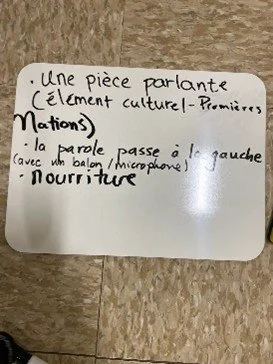 · Une pièce parlante
(élément culturel - Premières
Nations)
· la parole passe à la gauche
(avec un balon / microphone)
· nourriture